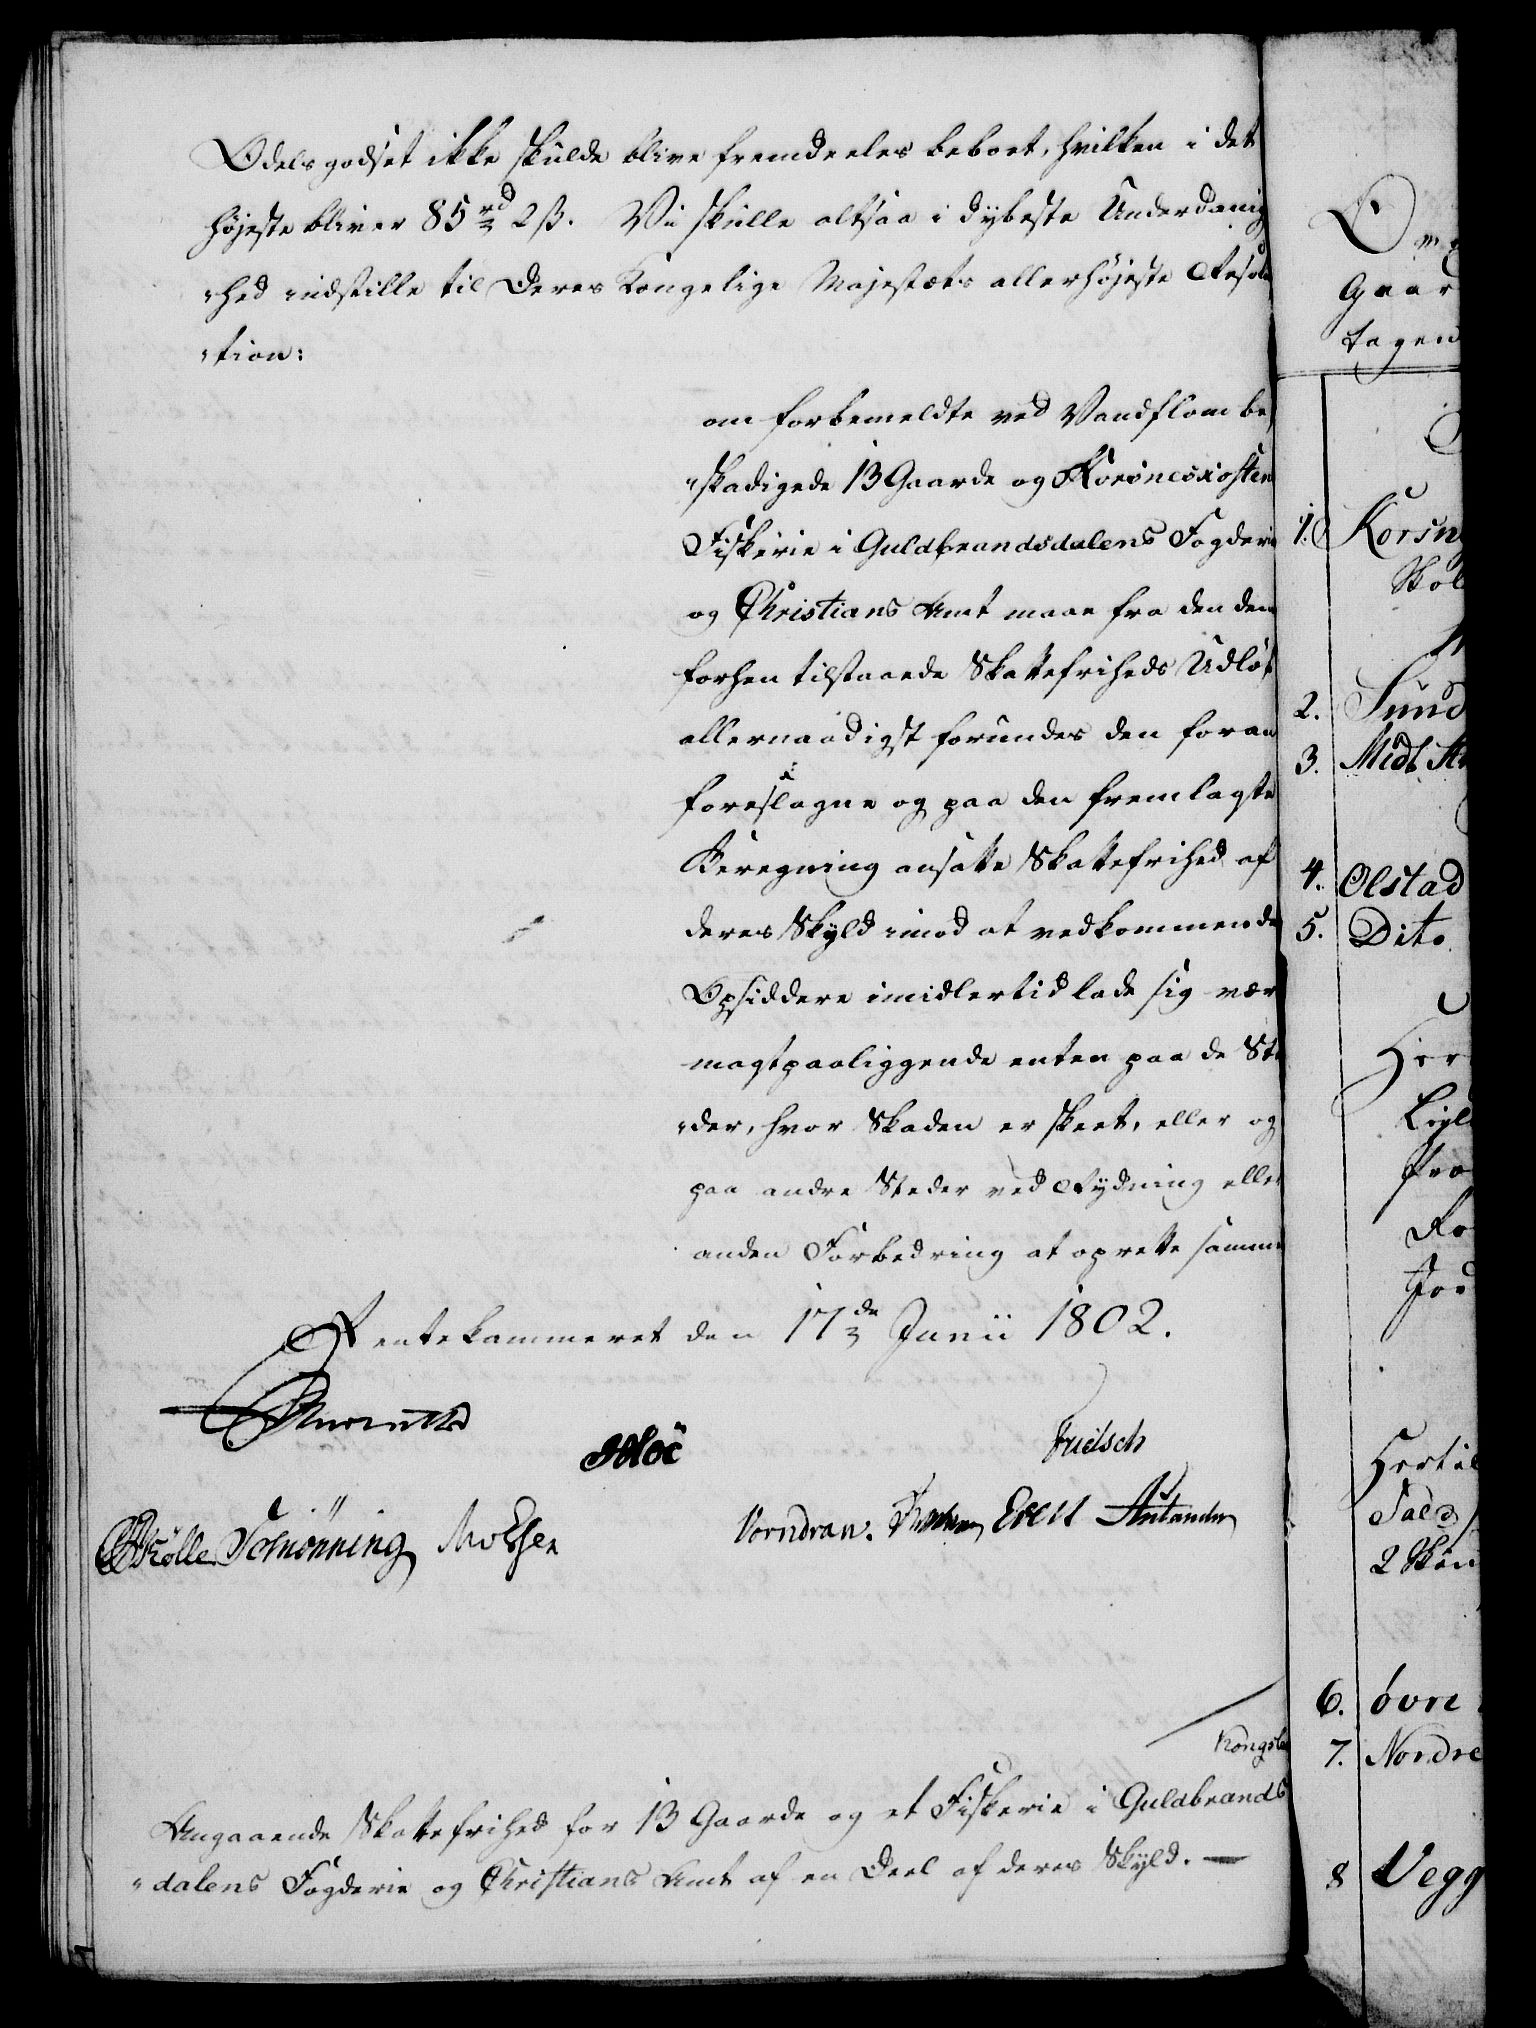 Odelsgodset ikke skulde blive fremdeeles beboet, hvilken i det
højeste bliver 85 rd 2 ß. Vi skulle altsaa i dybeste Underdanig
"hed indstille til Deres Kongelige Majestæts allerhøjeste Resolu
"tion:
om forbemeldte ved Vandflom be
"skadigede 13 Gaarde og Korsnesxosten
Fiskerie i Guldbrandsdalens Fogderie
og Christians Amt maae fra den dem
forhen tilstaaede Skattefriheds Udløb
allernaadigst forundes den foran
foreslagne og paa den fremlagte
Beregning ansatte Skattefrihed af
deres Skyld imod at vedkommende
Opsiddere imidlertid lade sig være
magtpaaliggende enten paa de Ste
"der, hvor Skaden er skeet, eller og
paa andre Steder ved Rydning eller
anden Forbedring at oprette samme
Rentekammeret den 17de Junii 1802.
Fridsch
Schiønning
Vorndran.
Kongsb
Angaaende Skattefrihed for 13 Gaarde og et Fiskerie i Guldbrands
"dalens Fogderie og Christians Amt af en Deel af deres Skyld. —
Gaar
tagen
1. Korsn
Skol
2. Sund
3. Midt
4. Olstad
5. Dito
Her
Hertil
2 Skin
6. övre
7. Nordre
8 Vegg